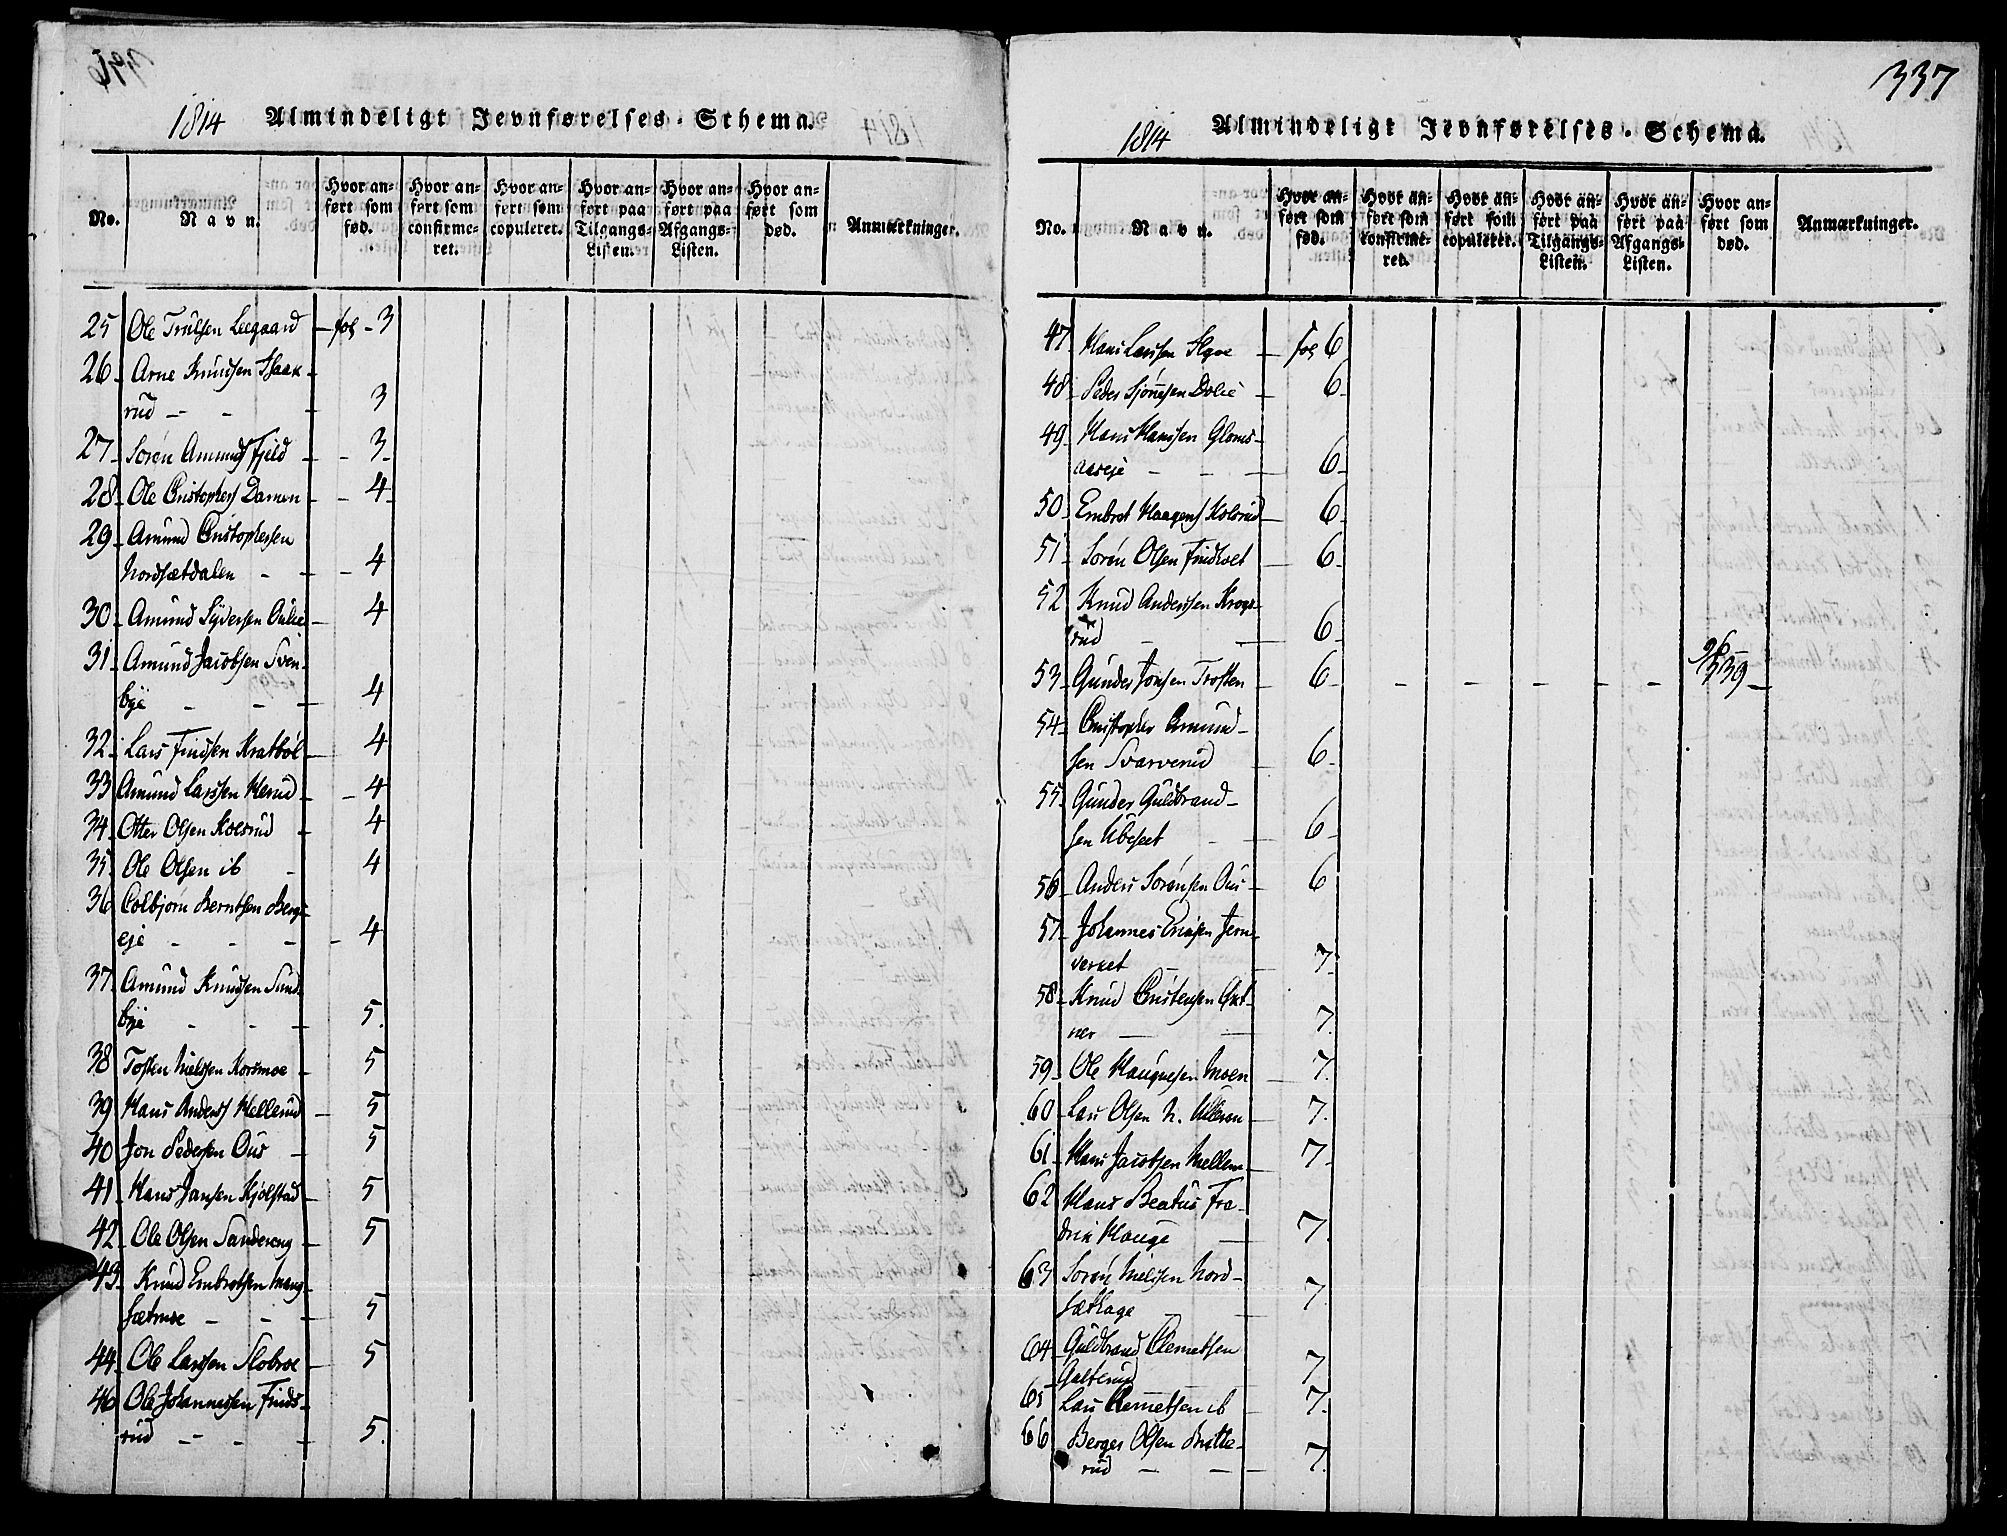 1814 Almindeligt Jevnførelses-Schema.
No.
Navn.
Hvor anført som fød.
Hvor anført som confirmeret.
Hvor anført som copuleret.
Hvor anført paa Tilgangs-Listen.
Hvor anført paa Afgangs-Listen.
Hvor anført som død.
Anmærkninger.
25 Ole Trulsen Leegaard fol - 3
26 Arne Knudsen Haak-
rud - - 3
27 Soren Amunds Fjeld - 3
28 Ole Cristophers Damen - 4
29 Amund Cristophersen
Nordsætdalen - - 4
30 Amund Syversen 4
31 Amund Jacobsen Sven-
bye - - 4
32 Lars Findsen Kratbøl 4
33 Amund Larssen Herud - 4
34 Otter Olsen Kolsrud 4
35 Ole Olsen ib - 4
36 Colbjørn Berntsen Bergs-
eje - - - 4
37 Amund Knudsen Sund-
bye - - 5
38 Tosten Nielssen Korsmoe 5
39 Hans Anders Mellerud 5
40 Jon Pedersen Ous 5
41 Hans Jansen Kjølstad 5
42 Ole Olsen Sandereng 5
43 Knud Embretsen Mang-
sætmoe - - 5
44 Ole Larssen Slobroe 5
46 Ole Johannessen Finds-
rud - - - 5
337
1814 Almindeligt Jevnførelses-Schema.
No.
Navn.
Hvor anført som fød.
Hvor anført som confirmeret.
Hvor anført som copuleret.
Hvor anført paa Tilgangs-Listen.
Hvor anført paa Afgangs-Listen.
Hvor anført som død.
Anmærkninger.
47 Hans Larssen fol 6
48 Peder 6
49 Hans Hanssen Gloms-
aaseje - - 6
50 Embret Haagens Kolsrud 6
51 Soren Olsen Findholt 6
52 Knud Anderssen Krogs-
rud - - 6
53 Gunder Jonsen Trosten 6 - - - - - 339
54 Cristopher Amund-
sen Svarverud 6
55 Gunder Guldbrand-
sen Ubeseet - 6
56 Anders Sorensen Ous 6
57 Johannes Ericsen Jern-
verket - 7
58 Knud Cristensen
ner - - 7
59 Ole Haugnesen Moen 7
60 Lars Olsen N. Ulleren 7
61 Hans Jacobsen Mellem 7
62 Hans Beatus Fre-
drik Hauge - 7
63 Soren Nielssen Nord-
sæthage - - 7
64 Guldbrand Clemetsen
Galterud 7
65 Lars Clemetsen ib 7
66 Berger Olsen Bratte-
rud - - - 7